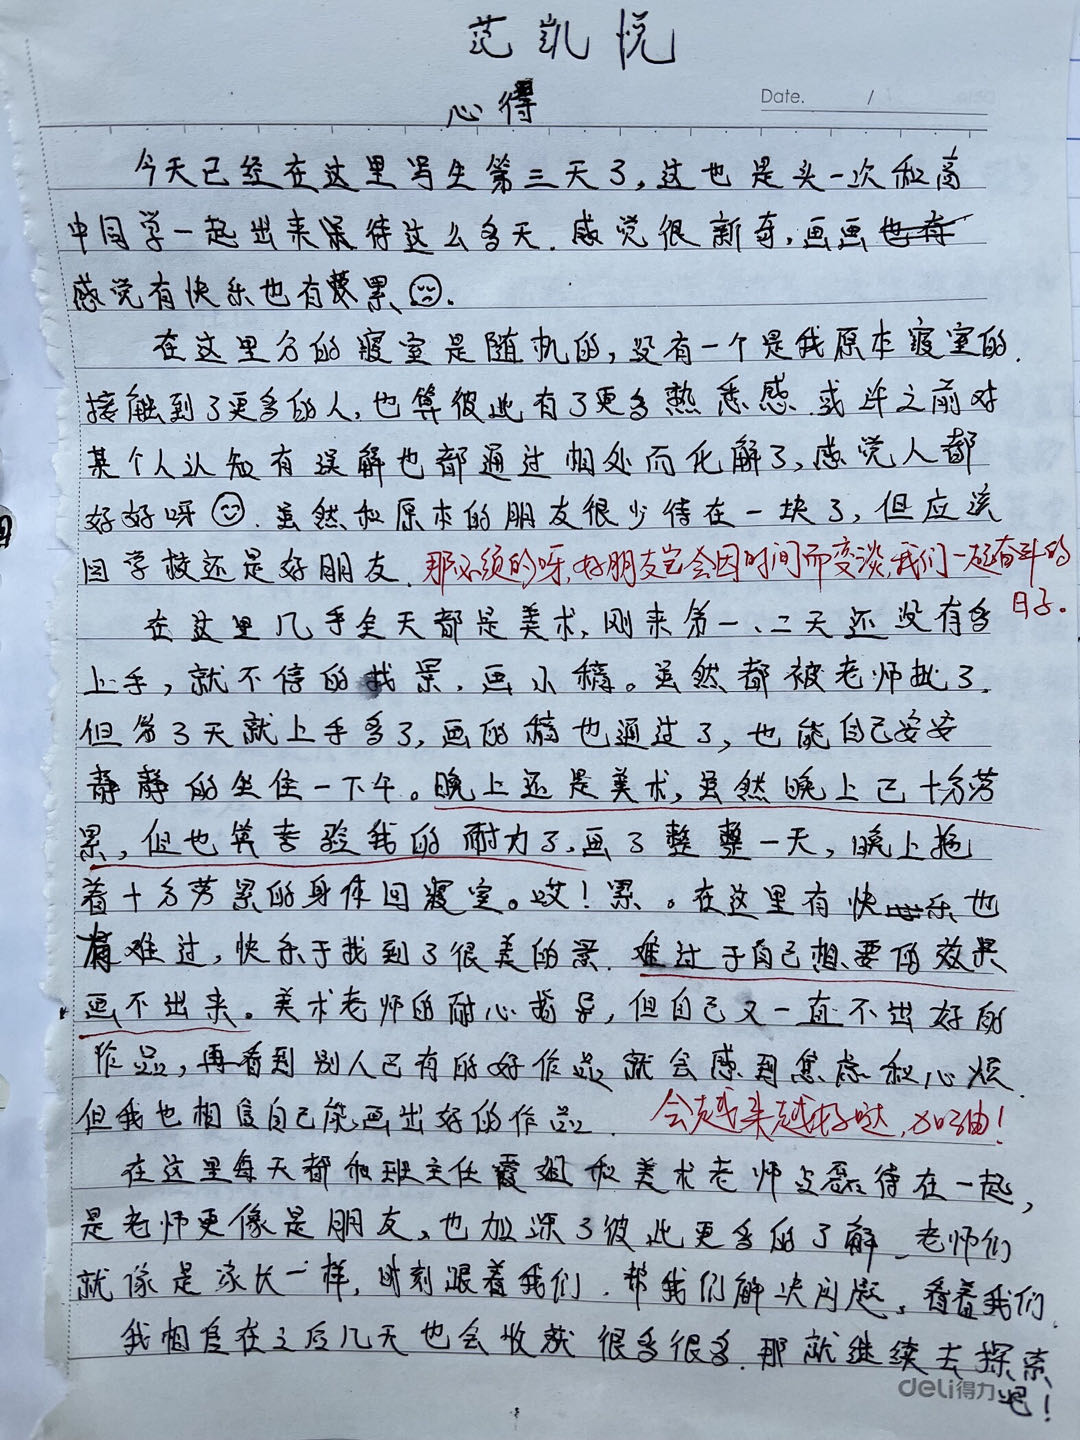 范凯悦
心得
Date. /
今天已经在这里写生第三天了，这也是头一次和高
中同学一起出来待这么多天．感觉很新奇，画画
感觉有快乐也有累．
在这里分的寝室是随机的，没有一个是我原本寝室的．
接触到了更多的人，也算彼此有了更多熟悉感．或许之前对
某个人认知有误解也都通过相处而化解了，感觉人都
好好呀．虽然和原本的朋友很少待在一块了，但应该
回学校还是好朋友．那必须的呀，好朋友会因时间而变淡，我们一起奋斗的
日子．
在这里几乎全天都是美术，刚来第一、二天还没有多
上手，就不停的找景，画小稿。虽然都被老师批了．
但第3天就上手多了，画的稿也通过了，也能自己安安
静静的坐住一下午。晚上还是美术，虽然晚上已十分劳
累，但也算考验我的耐力了．画了整整一天，晚上拖
着十分劳累的身体回寝室。哎！累。在这里有快乐也
有难过，快乐于找到了很美的景．难过于自己想要的效果
画不出来。美术老师的耐心指导，但自己又一直不出好的
作品，再看到别人已有的好作品就会感到焦虑和心烦．
但我也相信自己能画出好的作品． 会越来越好哒，加油！
在这里每天都和班主任霞姐和美术老师磊待在一起，
是老师更像是朋友，也加深了彼此更多的了解．老师们
就像是家长一样，时刻跟着我们．帮我们解决问题，看着我们．
我相信在之后几天也会收获很多很多．那就继续去探索
吧！
deli得力